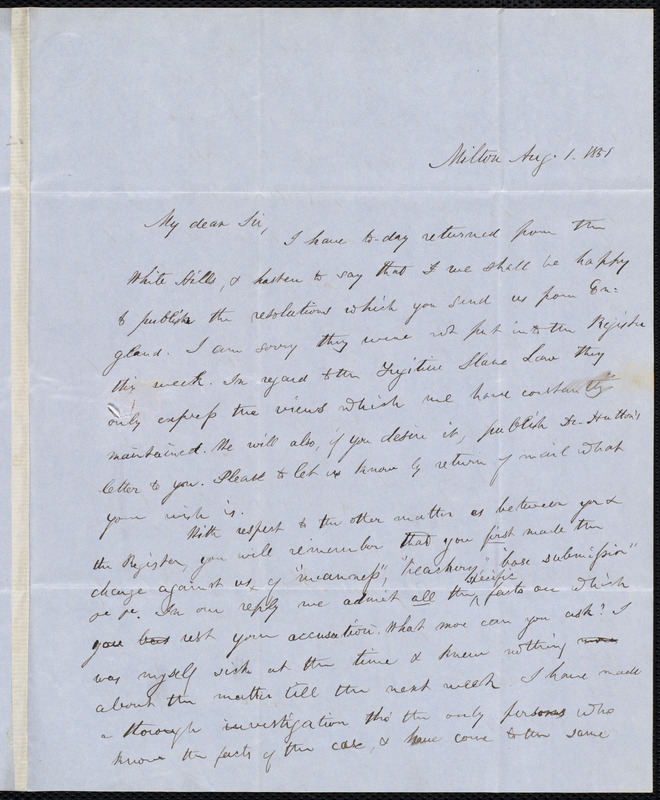 Milton Aug. 1. 1851
My dear Sir,
I have to-day returned from the
White Hills, & hasten to say that I we shall be happy
to publish the resolutions which you send us from En=
gland. I am sorry they were not put into the Register
this week. In regard to the Fugitive Slave Law they
only express the views which we have constantly
maintained. We will also, if you desire it, publish Dr. Hutton's
letter to you. Please to let us know by return of mail what
your wish is.
With respect to the other matter as between you &
the Register, you will remember that you first made the
charge against us of "meanness", "treachery," "base submission"
&c &c. In our reply we admit all the specific facts on which
you rest your accusation. What more can you ask? I
was myself sick at the time & knew nothing
about the matter till the next week. I have made
a thorough investigation thro' the only persons who
know the facts of the case, & have come to the same